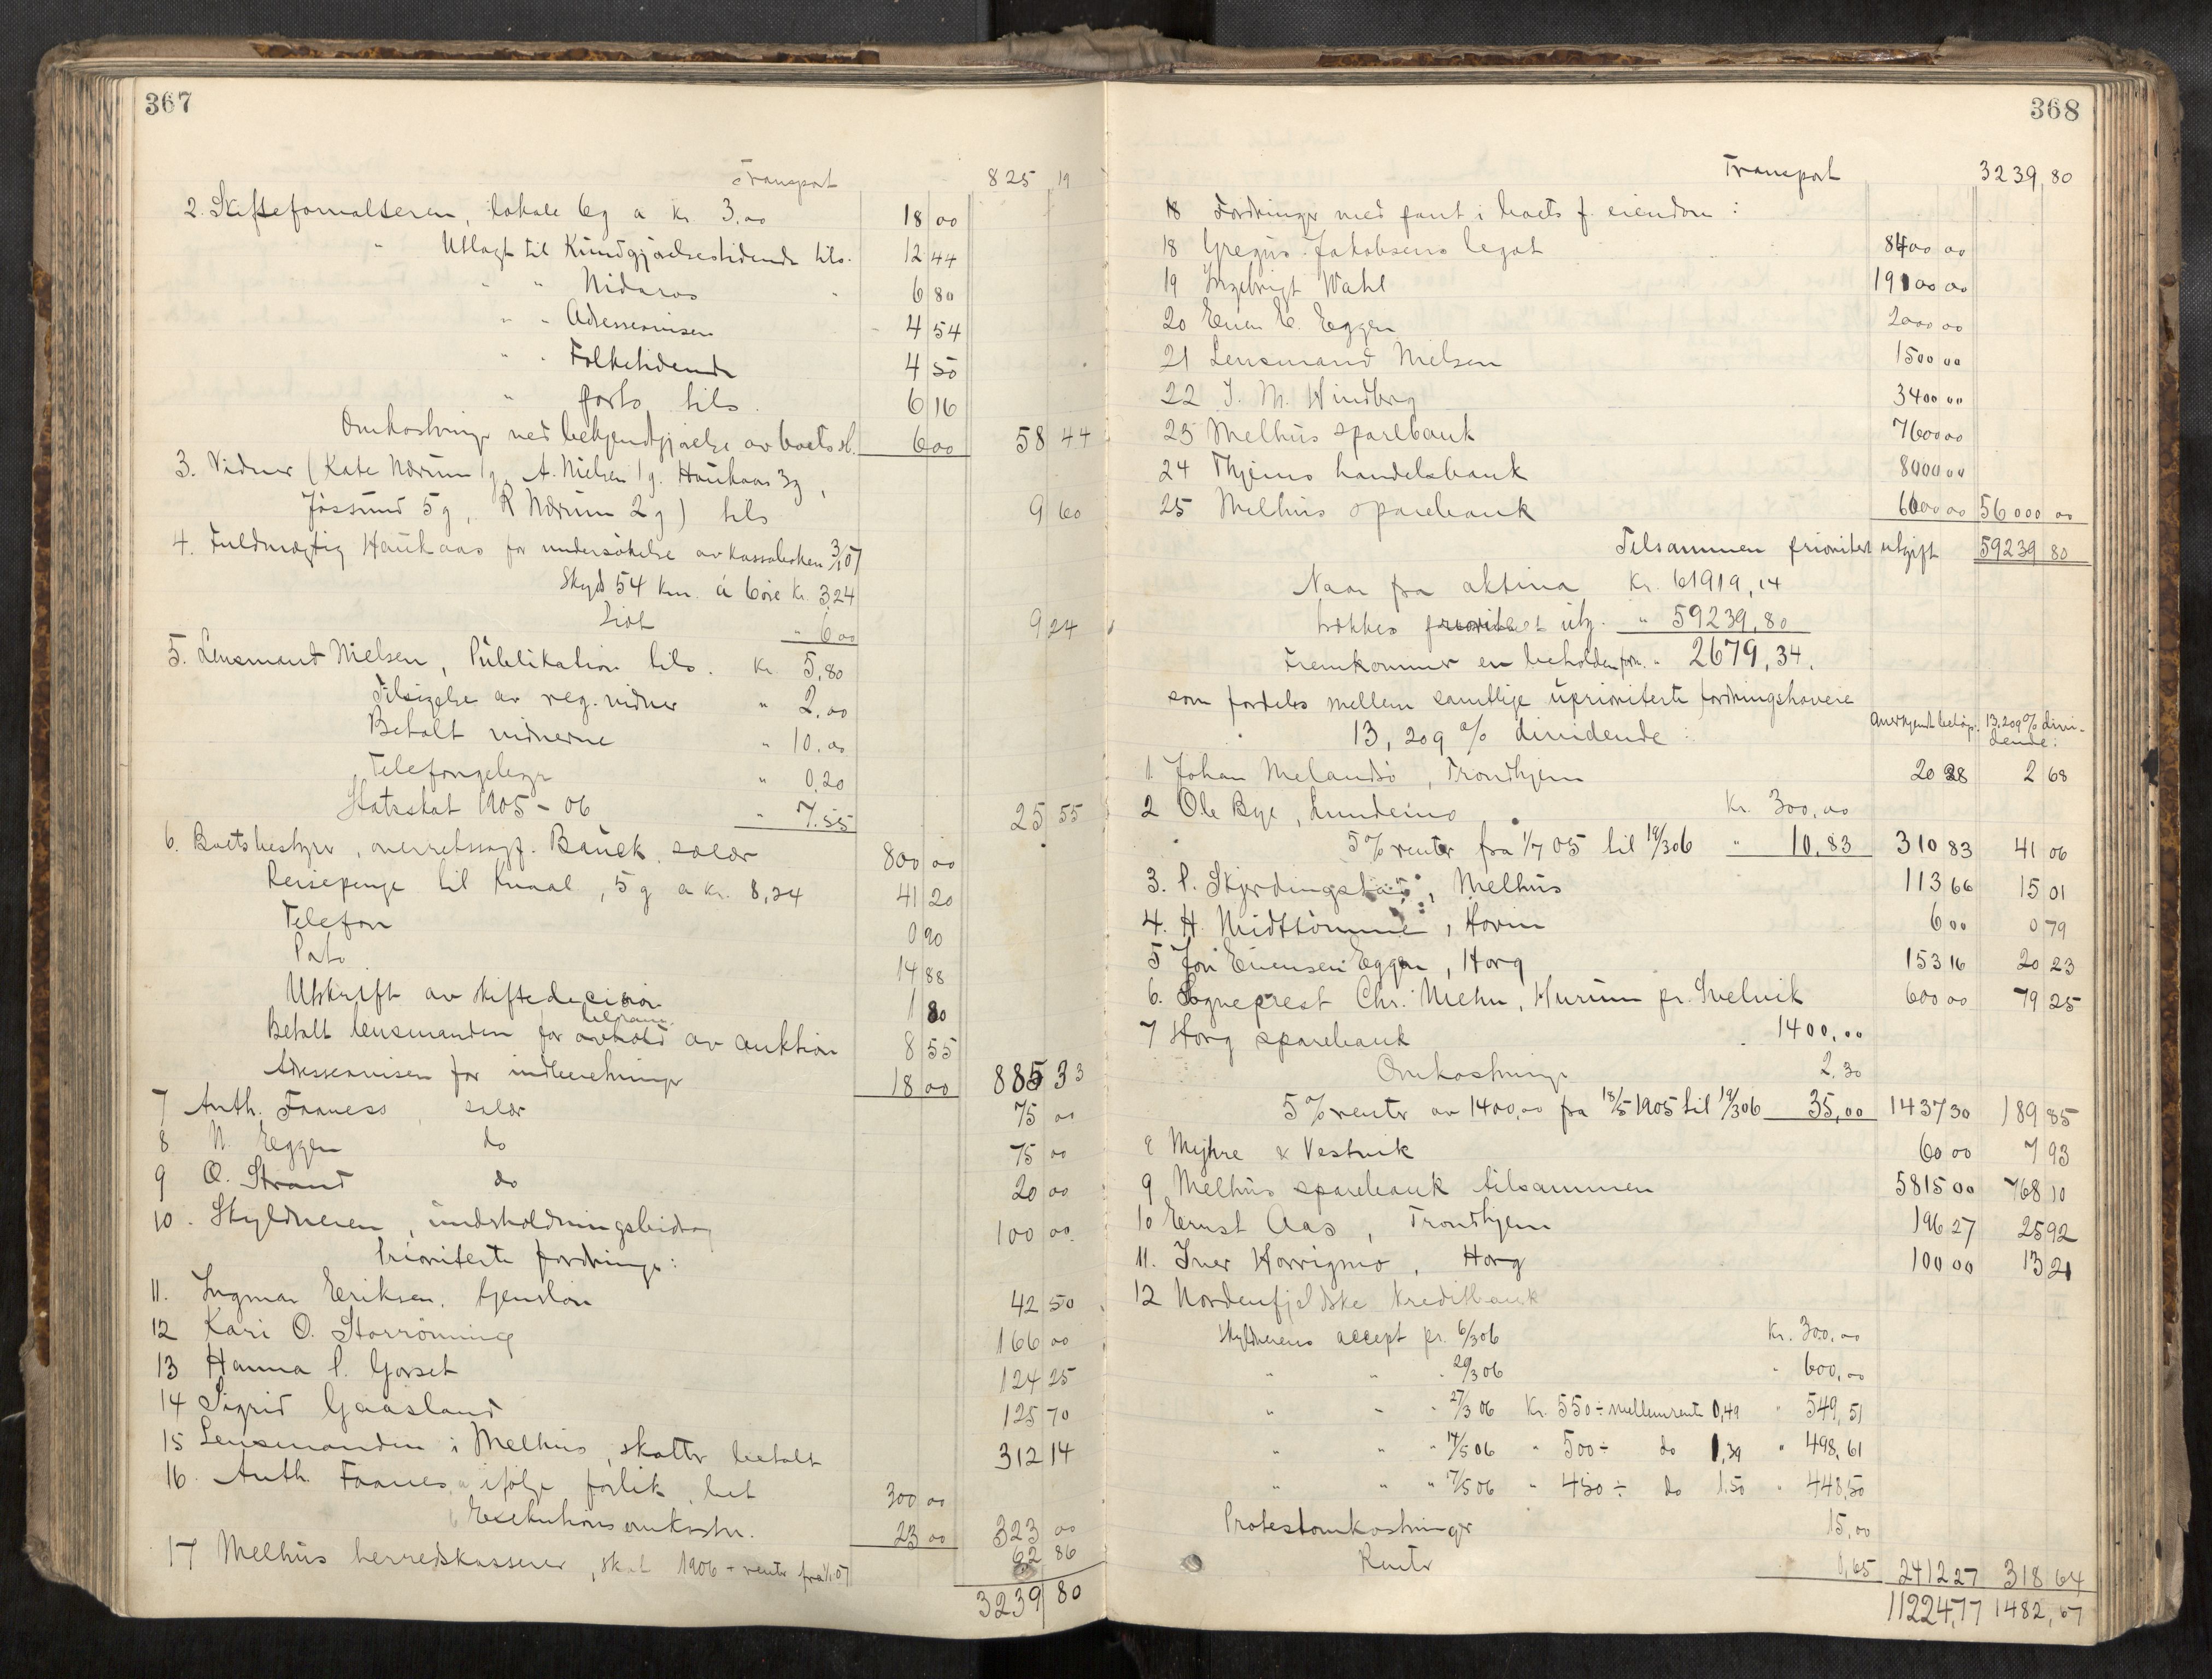 367
Transport 825 19
2. Skifteforvalteren, lokale 6g a kr. 3.00 18 00
" Utlagt til Kundgjørelsestidende tils. 12 44
" " Nidaros " 6 80
" " Adresseavisen - 4 54
" " Folketidende 4 50
" porto tils. 6 16
Omkostninger ved bekjendtgjørelse av boets sl. 6 00 58 44
3. Vidner (Kate Nærum 1g, A. Nielsen 1g. Haukaas 3g,
Jøssund 5g, R Nærum 2g) tils 9 60
4. Fuldmægtig Haukaas for undersøkelse av kassaboken 3/1 07
Skyds 54 km. á 6 øre kr. 3,24
Diæt " 6 00 9 24
5. Lensmand Nielsen, Publikation tils. kr. 5,80
Tilsigelse av reg. vidner " 2,00
Betalt vidnerne " 10.00
Telefongebyr " 0,20
Statsskat 1905-06 " 7.55 25 55
6. Boets bestyrer, overretssagf. Bauck, salær 800 00
Reisepenge til Kvaal, 5g a kr. 8,24 41 20
Telefon 0 90
Porto 14 88
Utskrift av skiftedecision 1 80
Betalt lensmanden for avhold av auktion 8 55
Adresseavisen for indberetninger 18 00 885 33
7 Anth. Faaness, salær 75 00
8 N. Eggen do 75 00
9 O. Strand do 20 00
10. Skyldneren, underholdningsbidrag 100 00
Prioriterte fordringer:
11. Ingmar Eriksen, tjenstløn 42 50
12 Kari O. Storrønning 166 00
13 Hanna P. Gorset 124 25
14 Sigrid Gaasland 125 70
15 Lensmanden i Melhus, skatter betalt 312 14
16. Anth. Faanes ifølge forlik, bet 300 00
Exekutionsomkostn. 23 00 323 00
17 Melhus herredskasserer, skat 1906 + renter fra 1/1 07 62 86
3239 80
368
Transport 3239,80
18 Fordringer med pant i boets f. eiendom:
18 Gregus Jakobsens legat 8400 00
19 Ingebrigt Wahl 19100 00
20 Even E. Eggen 2000 00
21 Lensmand Nielsen 1500 00
22 J. M. Windberg 3400 00
23 Melhus sparebank 7600 00
24 Thjems handelsbank 8000 00
25 Melhus sparebank 6000 00 56000 00
Tilsammen prioritert utgift 59239 80
Naar fra aktiva kr. 61919,14
trækkes prioritert utg. " 59239,80
Fremkommer en beholden form. " 2679,34.
som fordeles mellem samtlige uprioriterte fordringshavere
13,209 % dividende: Anerkjendt beløp. 13,209 % dividende:
1 Johan Melandsø, Trondhjem 20 28 2 68
2 Ole Bye, Lundemo kr. 300,00
5% renter fra 1/7 05 til 19/3 06 " 10,83 310 83 41 06
3. P. Skjerdingstad, Melhus 113 66 15 01
4. H. Midttømme, Hovin 6 00 0 79
5 Jon Evensen Eggen, Horg 153 16 20 23
6. Sogneprest Chr. Mehn, Hurum pr. Svelvik 600 00 79 25
7 Horg sparebank 1400,00
Omkostninger 2,30
5% renter av 1400,00 fra 18/5 1905 til 19/3 06 35,00 1437 30 189 85
8 Myhre & Vestvik 60 00 7 93
9 Melhus sparebank tilsammen 5815 00 768 10
10 Ernst Aas, Trondhjem 196 27 25 92
11. Iver Horrigmo, Horg 100 00 13 21
12 Nordenfjeldske kreditbank
Skyldnerens accept pr. 6/3 06 Kr. 300,00
" " " 20/3 06 " 600,00
" " " 27/3 06 Kr. 550 ÷ mellemrente 0,49 " 549,51
" " " 14/5 06 " 500 ÷ do 1,39 " 498,61
" " " 7/5 06 " 450 ÷ do 1.50 " 448,50
Protestomkostninger 15,00
Renter 0,65 2412 27 318 64
11224,77 1482,67